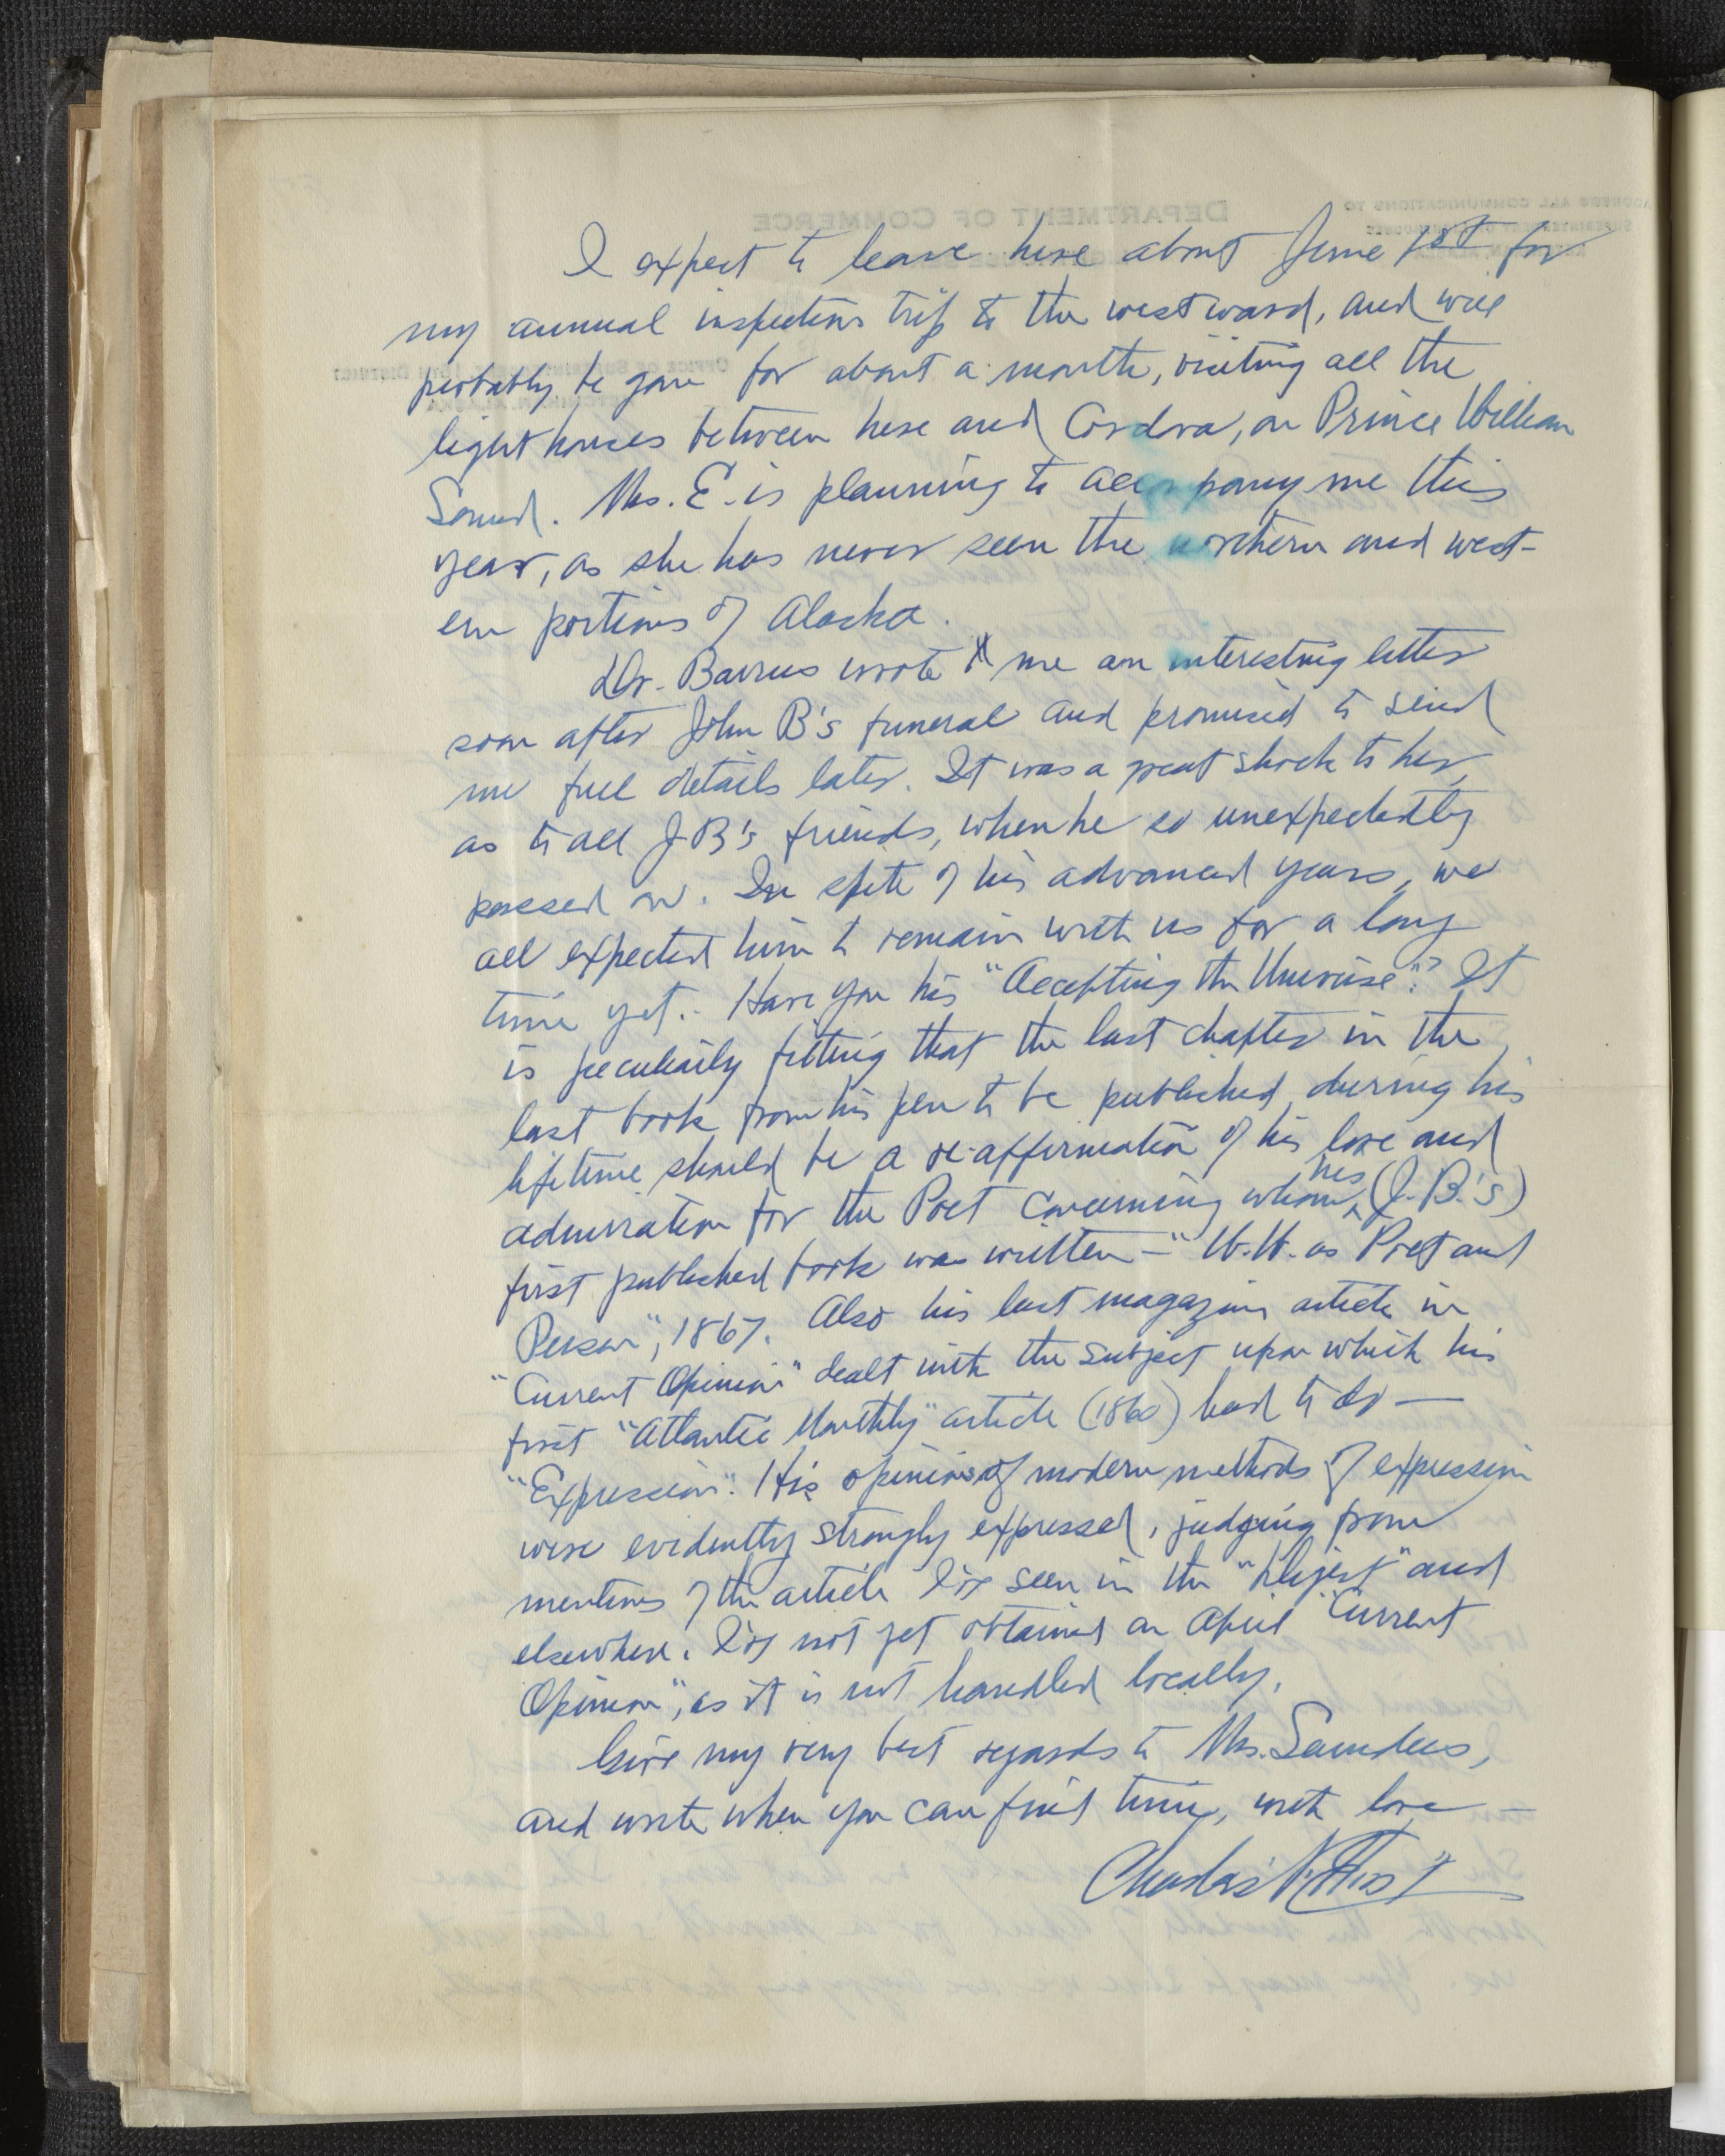 I expect to leave here about June 1st for
my annual inspection trip to the westward, and will
probably be gone for about a month, visiting all the
light houses between here and Cordova, on Prince William
Sound. Mrs. E. is planning to accompany me this
year, as she has never seen the northern and west-
ern portions of Alaska.
Dr. Barrus wrote me an interesting letter
soon after John B's funeral and promised to send
me full details later. It was a great shock to her,
as to all J B's friends, when he so unexpectedly
passed on. In spite of his advanced years, we
all expected him to remain with us for a long
time yet. - Have you his "Accepting the Universe"? It
is peculiarly fitting that the last chapter in the
last book from his pen to be published during his
lifetime should be a re-affirmation of his love and
admiration for the Poet concerning whom his (J. B.'s)
first published book was written - "W. W. as Poet and
Person", 1867. Also his last magazine article in
"Current Opinion" dealt with the subject upon which his
first "Atlantic Monthly" article (1860) had to do —
"Expression". His opinions of modern methods of expression
were evidently strongly expressed, judging from
mentions of the article I've seen in the "Digest" and
elsewhere. I've not yet obtained an April "Current
Opinion", as it is not handled locally.
Give my very best regards to Mrs. Saunders,
and write when you can find time, with love —
DEPARTMENT OF COMMERCE